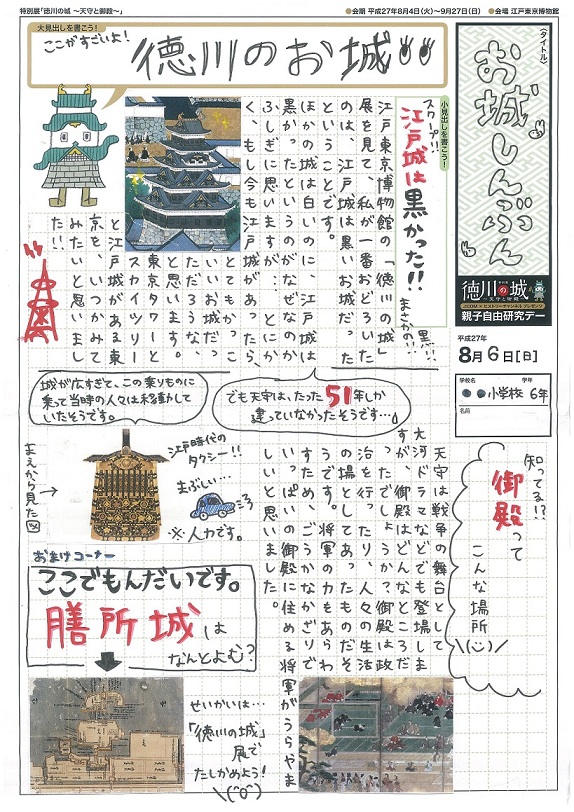 特別展「徳川の城 〜天守と御殿〜」
●会期 平成27年8月4日(火)〜9月27日(日)
●会場 江戸東京博物館
〈タイトル〉
お城しんぶん
徳川の城
〜天守と御殿〜
JCOM×ヒストリーチャンネル プレゼンツ
親子自由研究デー
平成27年
8月6日[日]
学校名
学年
●●小学校 6年
名前
大見出しを書こう!
ここがすごいよ!
徳川のお城!!
小見出しを書こう!
スクープ!!
江戸城は黒かった!!
まさかの!!
黒!!
江戸東京博物館の「徳川の城」
展を見て、私が一番おどろいた
のは、江戸城は黒いお城だった
ということです。
ほかの城は白いのに、江戸城は
黒かったというのがなぜなのか
ふしぎに思いますが…、とにか
く、もし今も江戸城があったら
とてもかっこ
いいお城だっ
ただろうな、
と思います。
東京タワーと
スカイツリー
と江戸城がある東
京を、いつかみて
みたいと思いまし
た!!
でも天守は、たった51年しか
建っていなかったそうです…。
城が広すぎて、この乗りものに
乗って当時の人々は移動して
いたそうです。
江戸時代の
タクシー!!
まぶしい…
※人力です。
まえから見た図
知ってる!?
御殿って
こんな場所
\(∵)/
天守は戦争の舞台として
大河ドラマなどでも登場しま
すが、御殿はどんなところだ
ったでしょうか?御殿は政
治を行ったり、人々の生活
の場としてあったものだそ
うです。将軍の力をあらわ
すため、ごうかなかざりで
いっぱいの御殿に住める将
軍がうらやま
しいと思いました。
おまけコーナー
ここでもんだいです。
膳所城は
なんとよむ?
せいかいは…
「徳川の城」
展で
たしかめよう!
\(^o^)